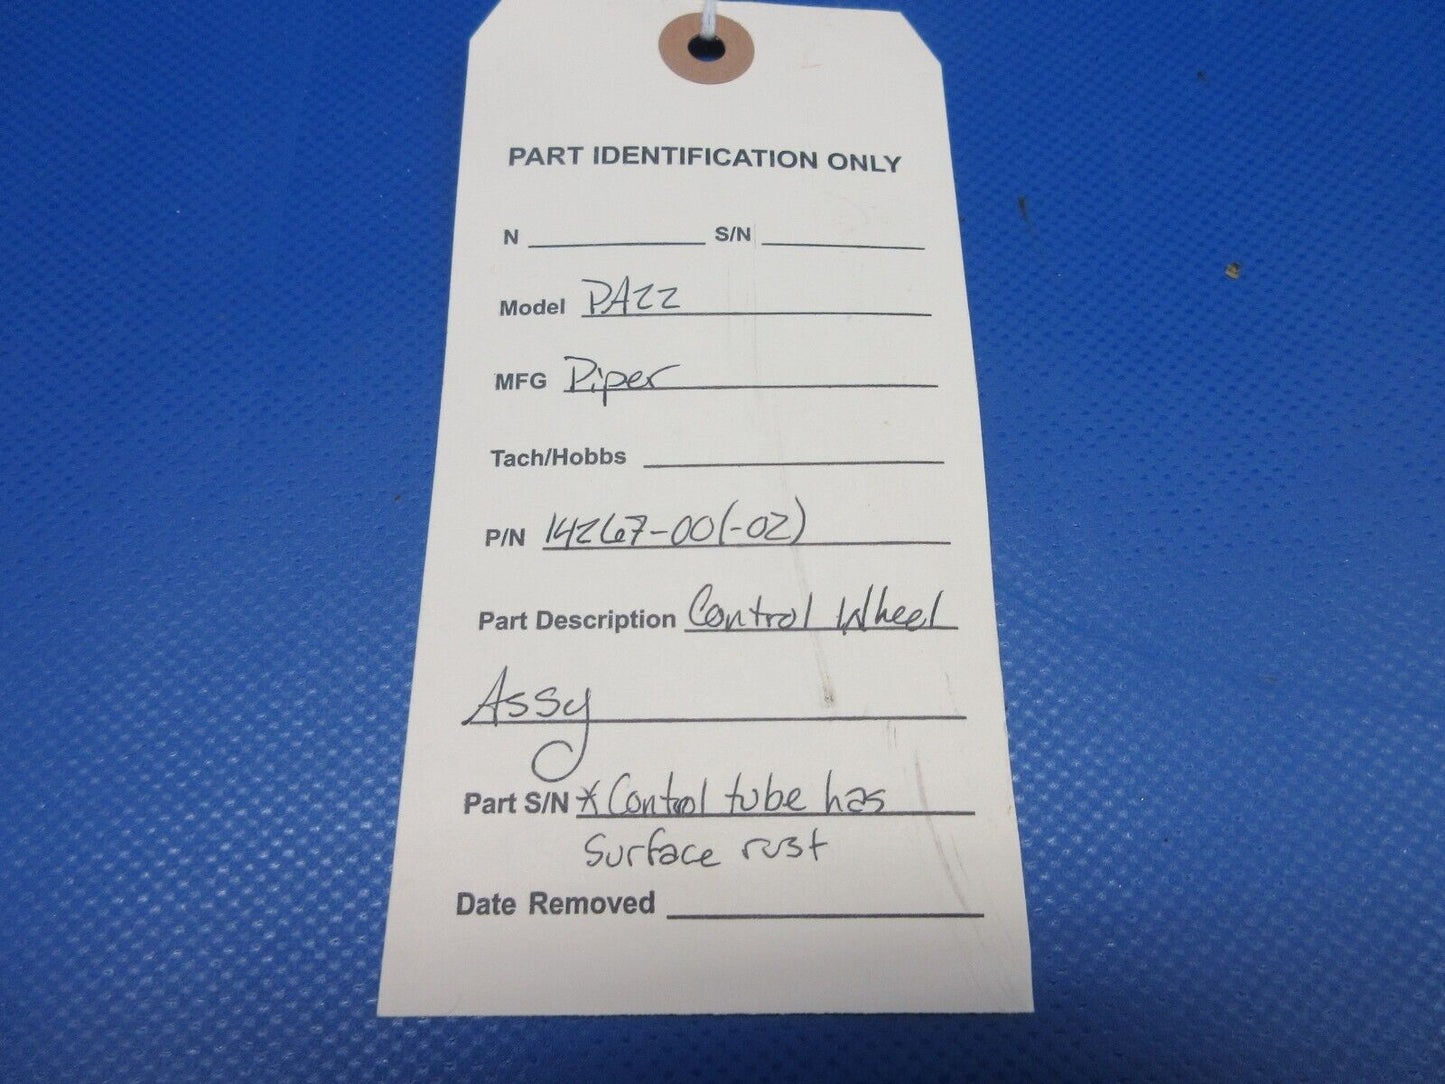 PART IDENTIFICATION ONLY
N ____________ S/N ____________
Model PA22
MFG Piper
Tach/Hobbs ____________
P/N 14267-00(-02)
Part Description Control Wheel
Assy
Part S/N * Control tube has
surface rust
Date Removed ____________